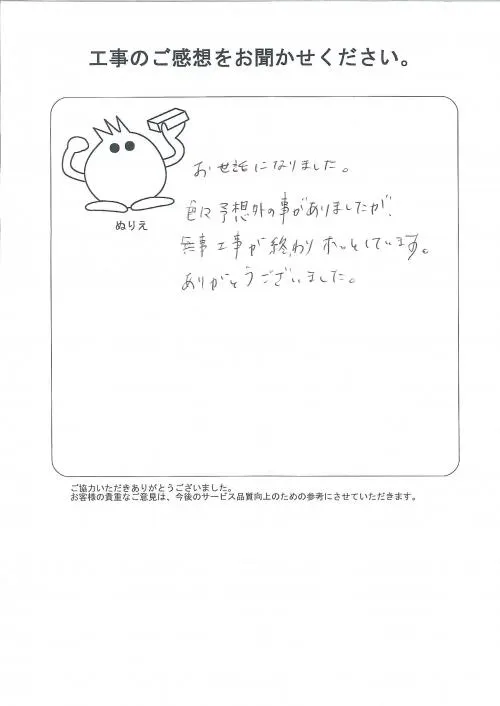 工事のご感想をお聞かせください。
ぬりえ
お世話になりました。
色々予想外の事がありましたが、
無事工事が終わりホッとしています。
ありがとうございました。
ご協力いただきありがとうございました。
お客様の貴重なご意見は、今後のサービス品質向上のための参考にさせていただきます。